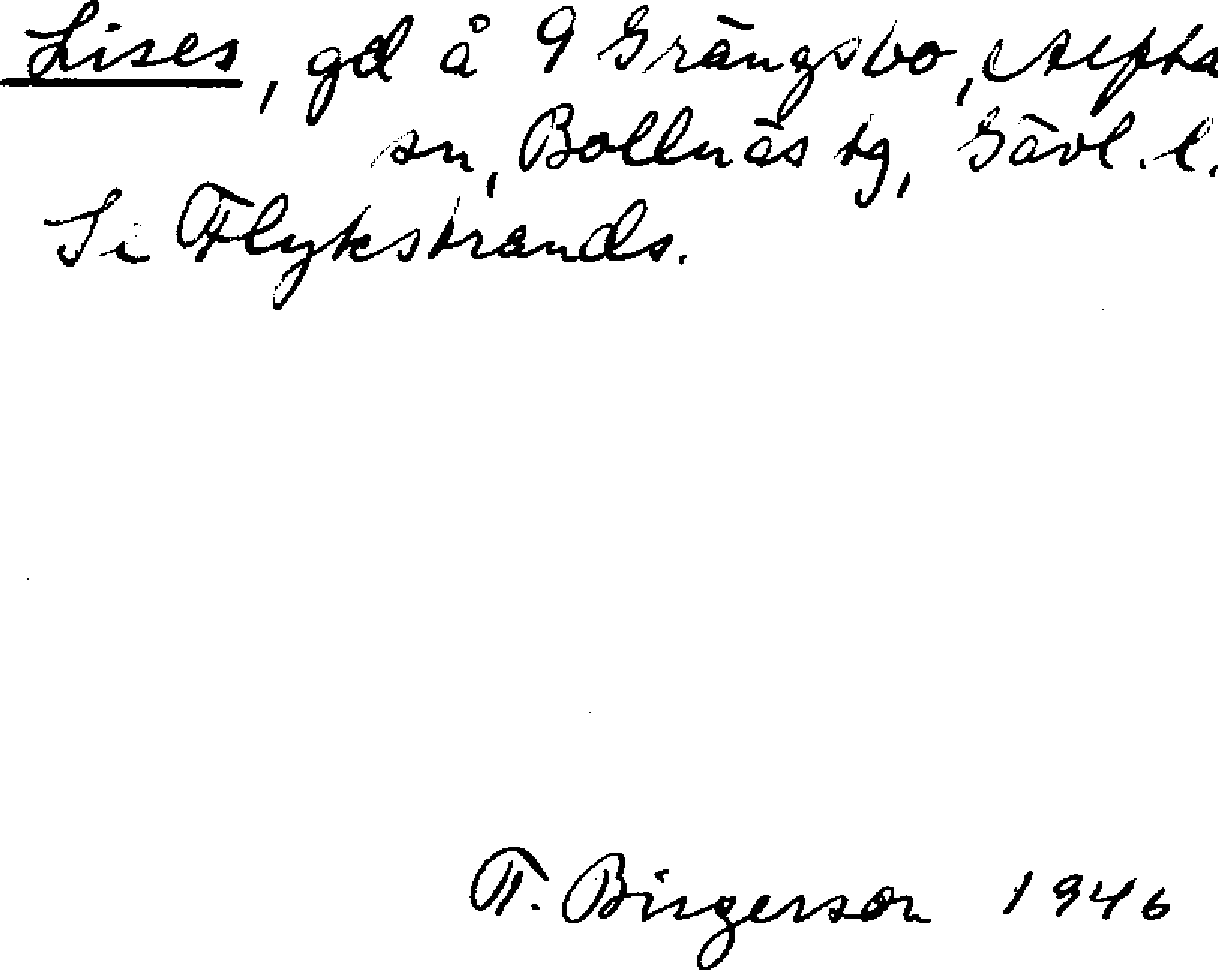 Lises, gd å 9 Grängsbo, Alfta
sn, Bollnäs tg, Gävl. l.
Se Flykstrands.
T. Birgerson 1946